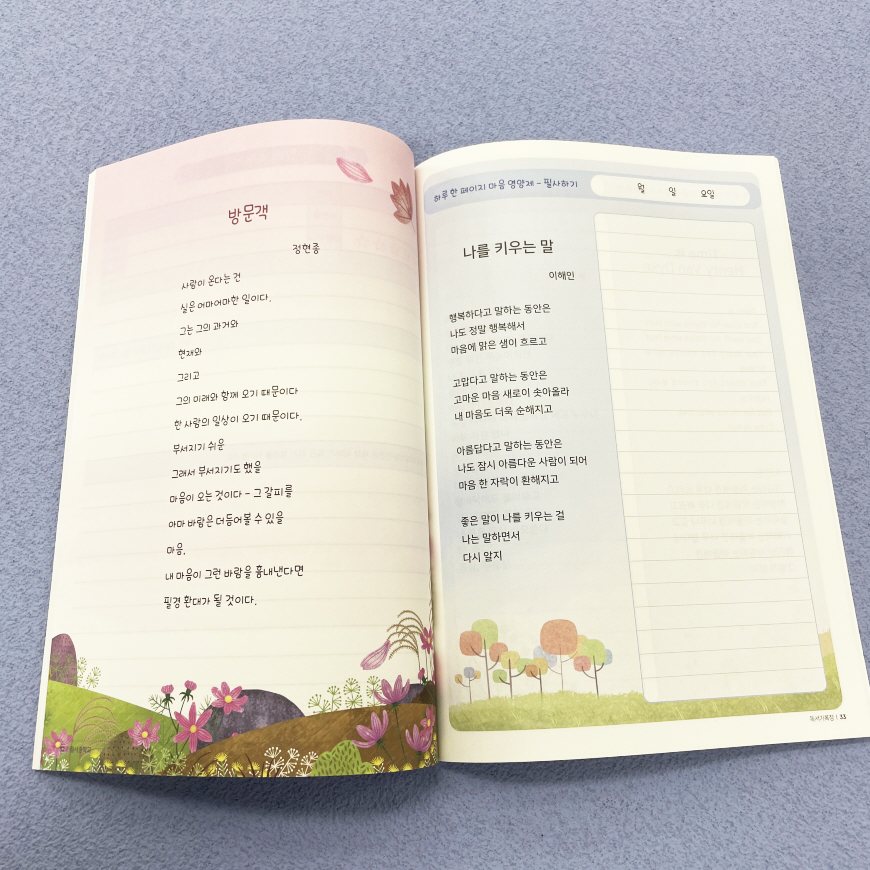 방문객
정현종
사람이 온다는 건
실은 어마어마한 일이다.
그는 그의 과거와
현재와
그리고
그의 미래와 함께 오기 때문이다
한 사람의 일생이 오기 때문이다.
부서지기 쉬운
그래서 부서지기도 했을
마음이 오는 것이다 - 그 갈피를
아마 바람은 더듬어볼 수 있을
마음,
내 마음이 그런 바람을 흉내낸다면
필경 환대가 될 것이다.
하루 한 페이지 마음 영양제 - 필사하기
월 일 요일
나를 키우는 말
이해인
행복하다고 말하는 동안은
나도 정말 행복해서
마음에 맑은 샘이 흐르고
고맙다고 말하는 동안은
고마운 마음 새로이 솟아올라
내 마음도 더욱 순해지고
아름답다고 말하는 동안은
나도 잠시 아름다운 사람이 되어
마음 한 자락이 환해지고
좋은 말이 나를 키우는 걸
나는 말하면서
다시 알지
독서기록장 | 33